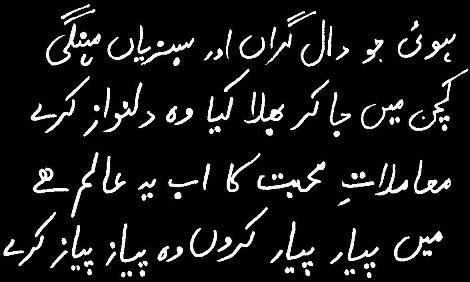 ہوئی جو دال گراں اور سبزیاں مہنگی
کچن میں جا کر بھلا کیا وہ دلنواز کرے
معاملاتِ محبت کا اب یہ عالم ہے
میں پیار پیار کروں وہ پیاز پیاز کرے